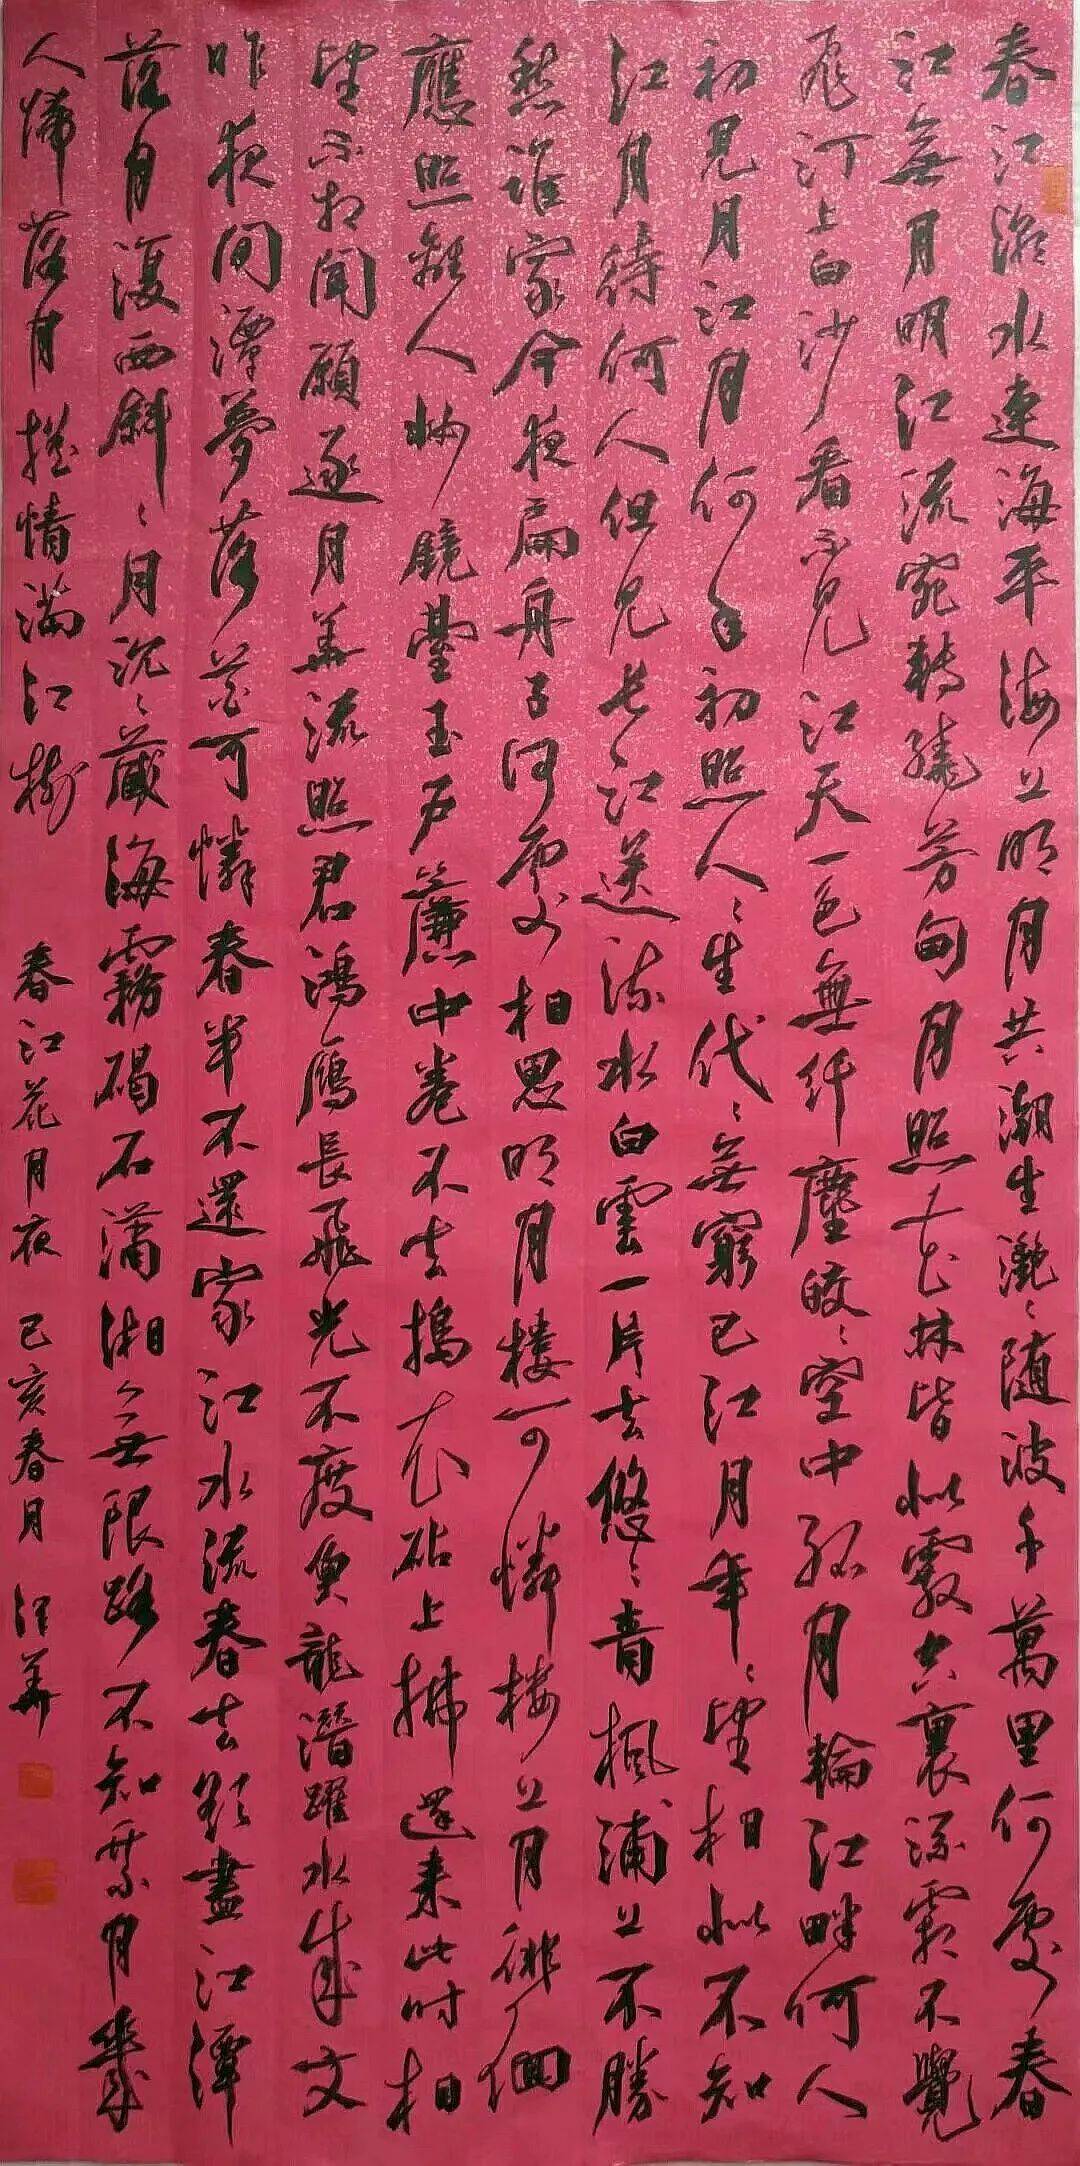 春江潮水連海平海上明月共潮生灔〻随波千萬里何處春
江無月明江流宛轉繞芳甸月照花林皆似霰空裏流霜不覺
飛汀上白沙看不見江天一色無纤塵皎〻空中孤月輪江畔何人
初見月江月何年初照人〻生代〻無窮已江月年〻望相似不知
江月待何人但見長江送流水白雲一片去悠〻青楓浦上不勝
愁誰家今夜扁舟子何處相思明月樓可憐樓上月徘徊
應照離人妝鏡臺玉户簾中卷不去搗衣砧上拂還来此时相
望不相聞願逐月華流照君鴻鴈長飛光不度魚龍潛躍水成文
昨夜閒潭夢落花可憐春半不還家江水流春去欲盡江潭
落月復西斜〻月沉〻藏海霧碣石瀟湘無限路不知乘月幾
人歸落月摇情满江樹 春江花月夜 己亥春月 汪華